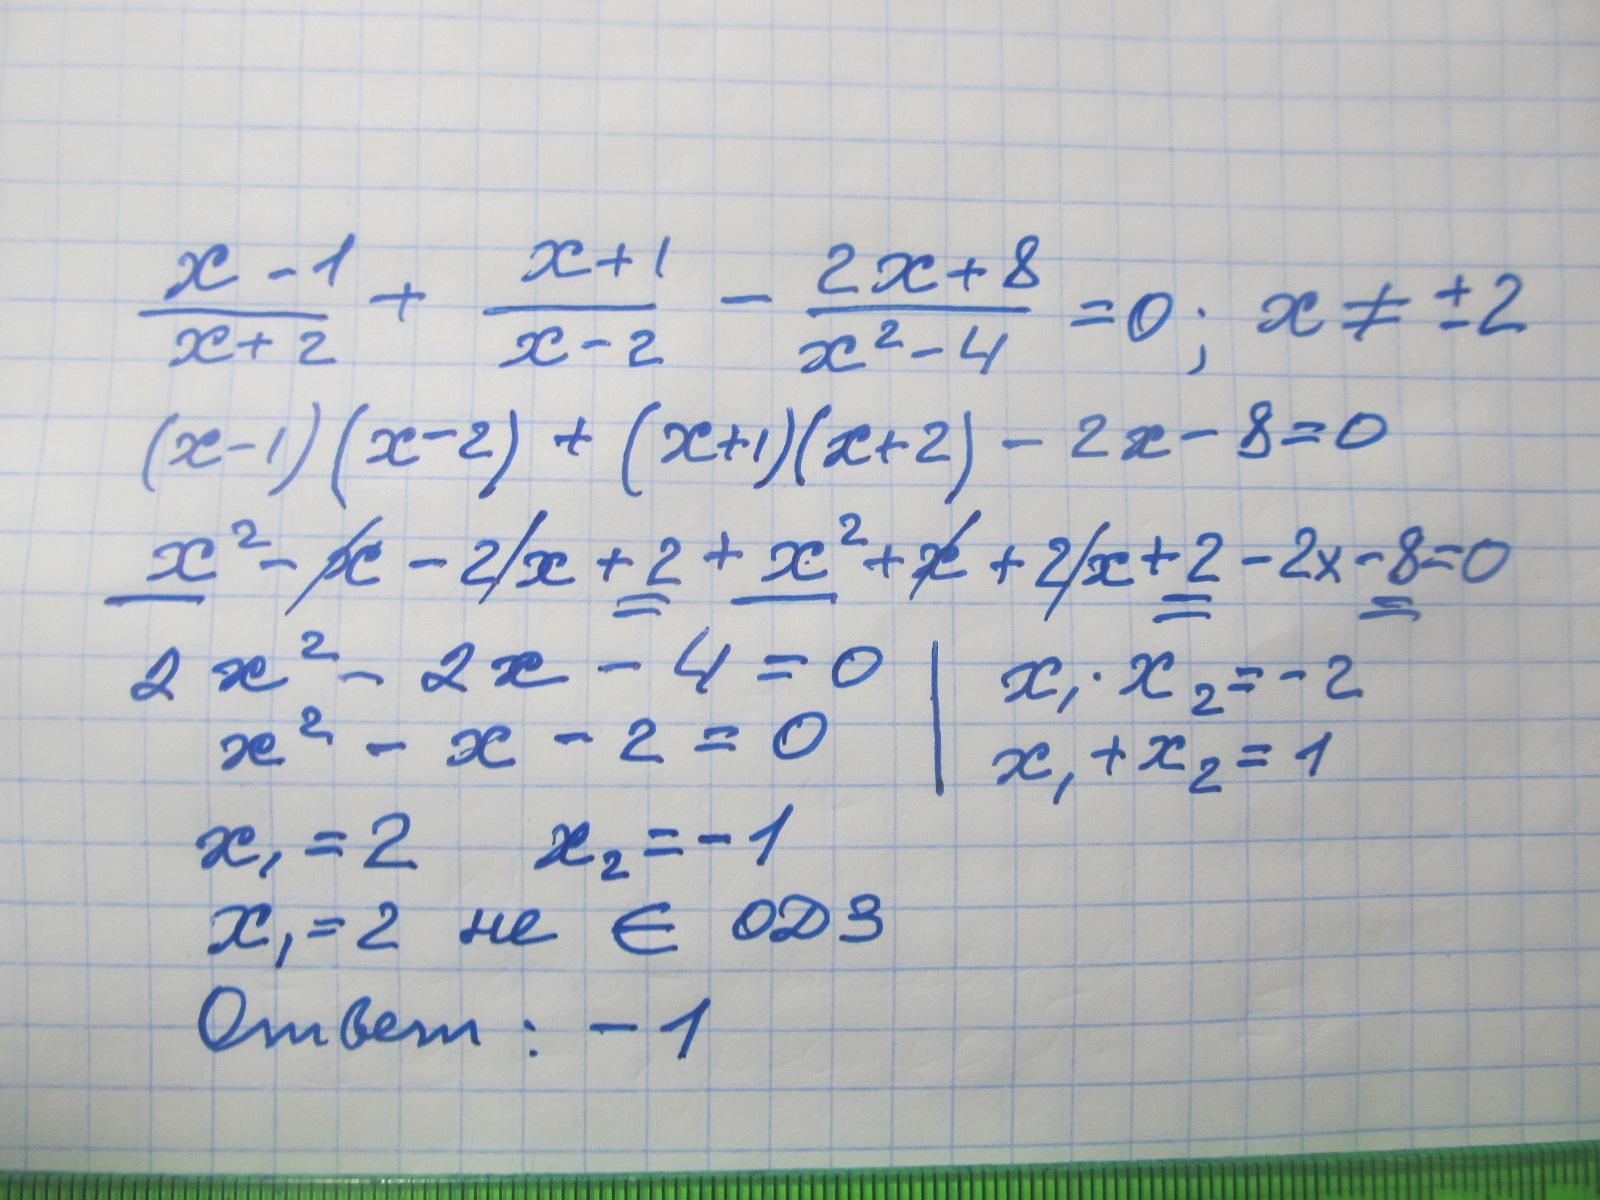 (x-1)/(x+2) + (x+1)/(x-2) - (2x+8)/(x²-4) = 0; x ≠ ±2
(x-1)(x-2) + (x+1)(x+2) - 2x - 8 = 0
x² - x - 2x + 2 + x² + x + 2x + 2 - 2x - 8 = 0
2x² - 2x - 4 = 0 | x₁ · x₂ = -2
x² - x - 2 = 0 | x₁ + x₂ = 1
x₁ = 2 x₂ = -1
x₁ = 2 не ∈ ОДЗ
Ответ: -1